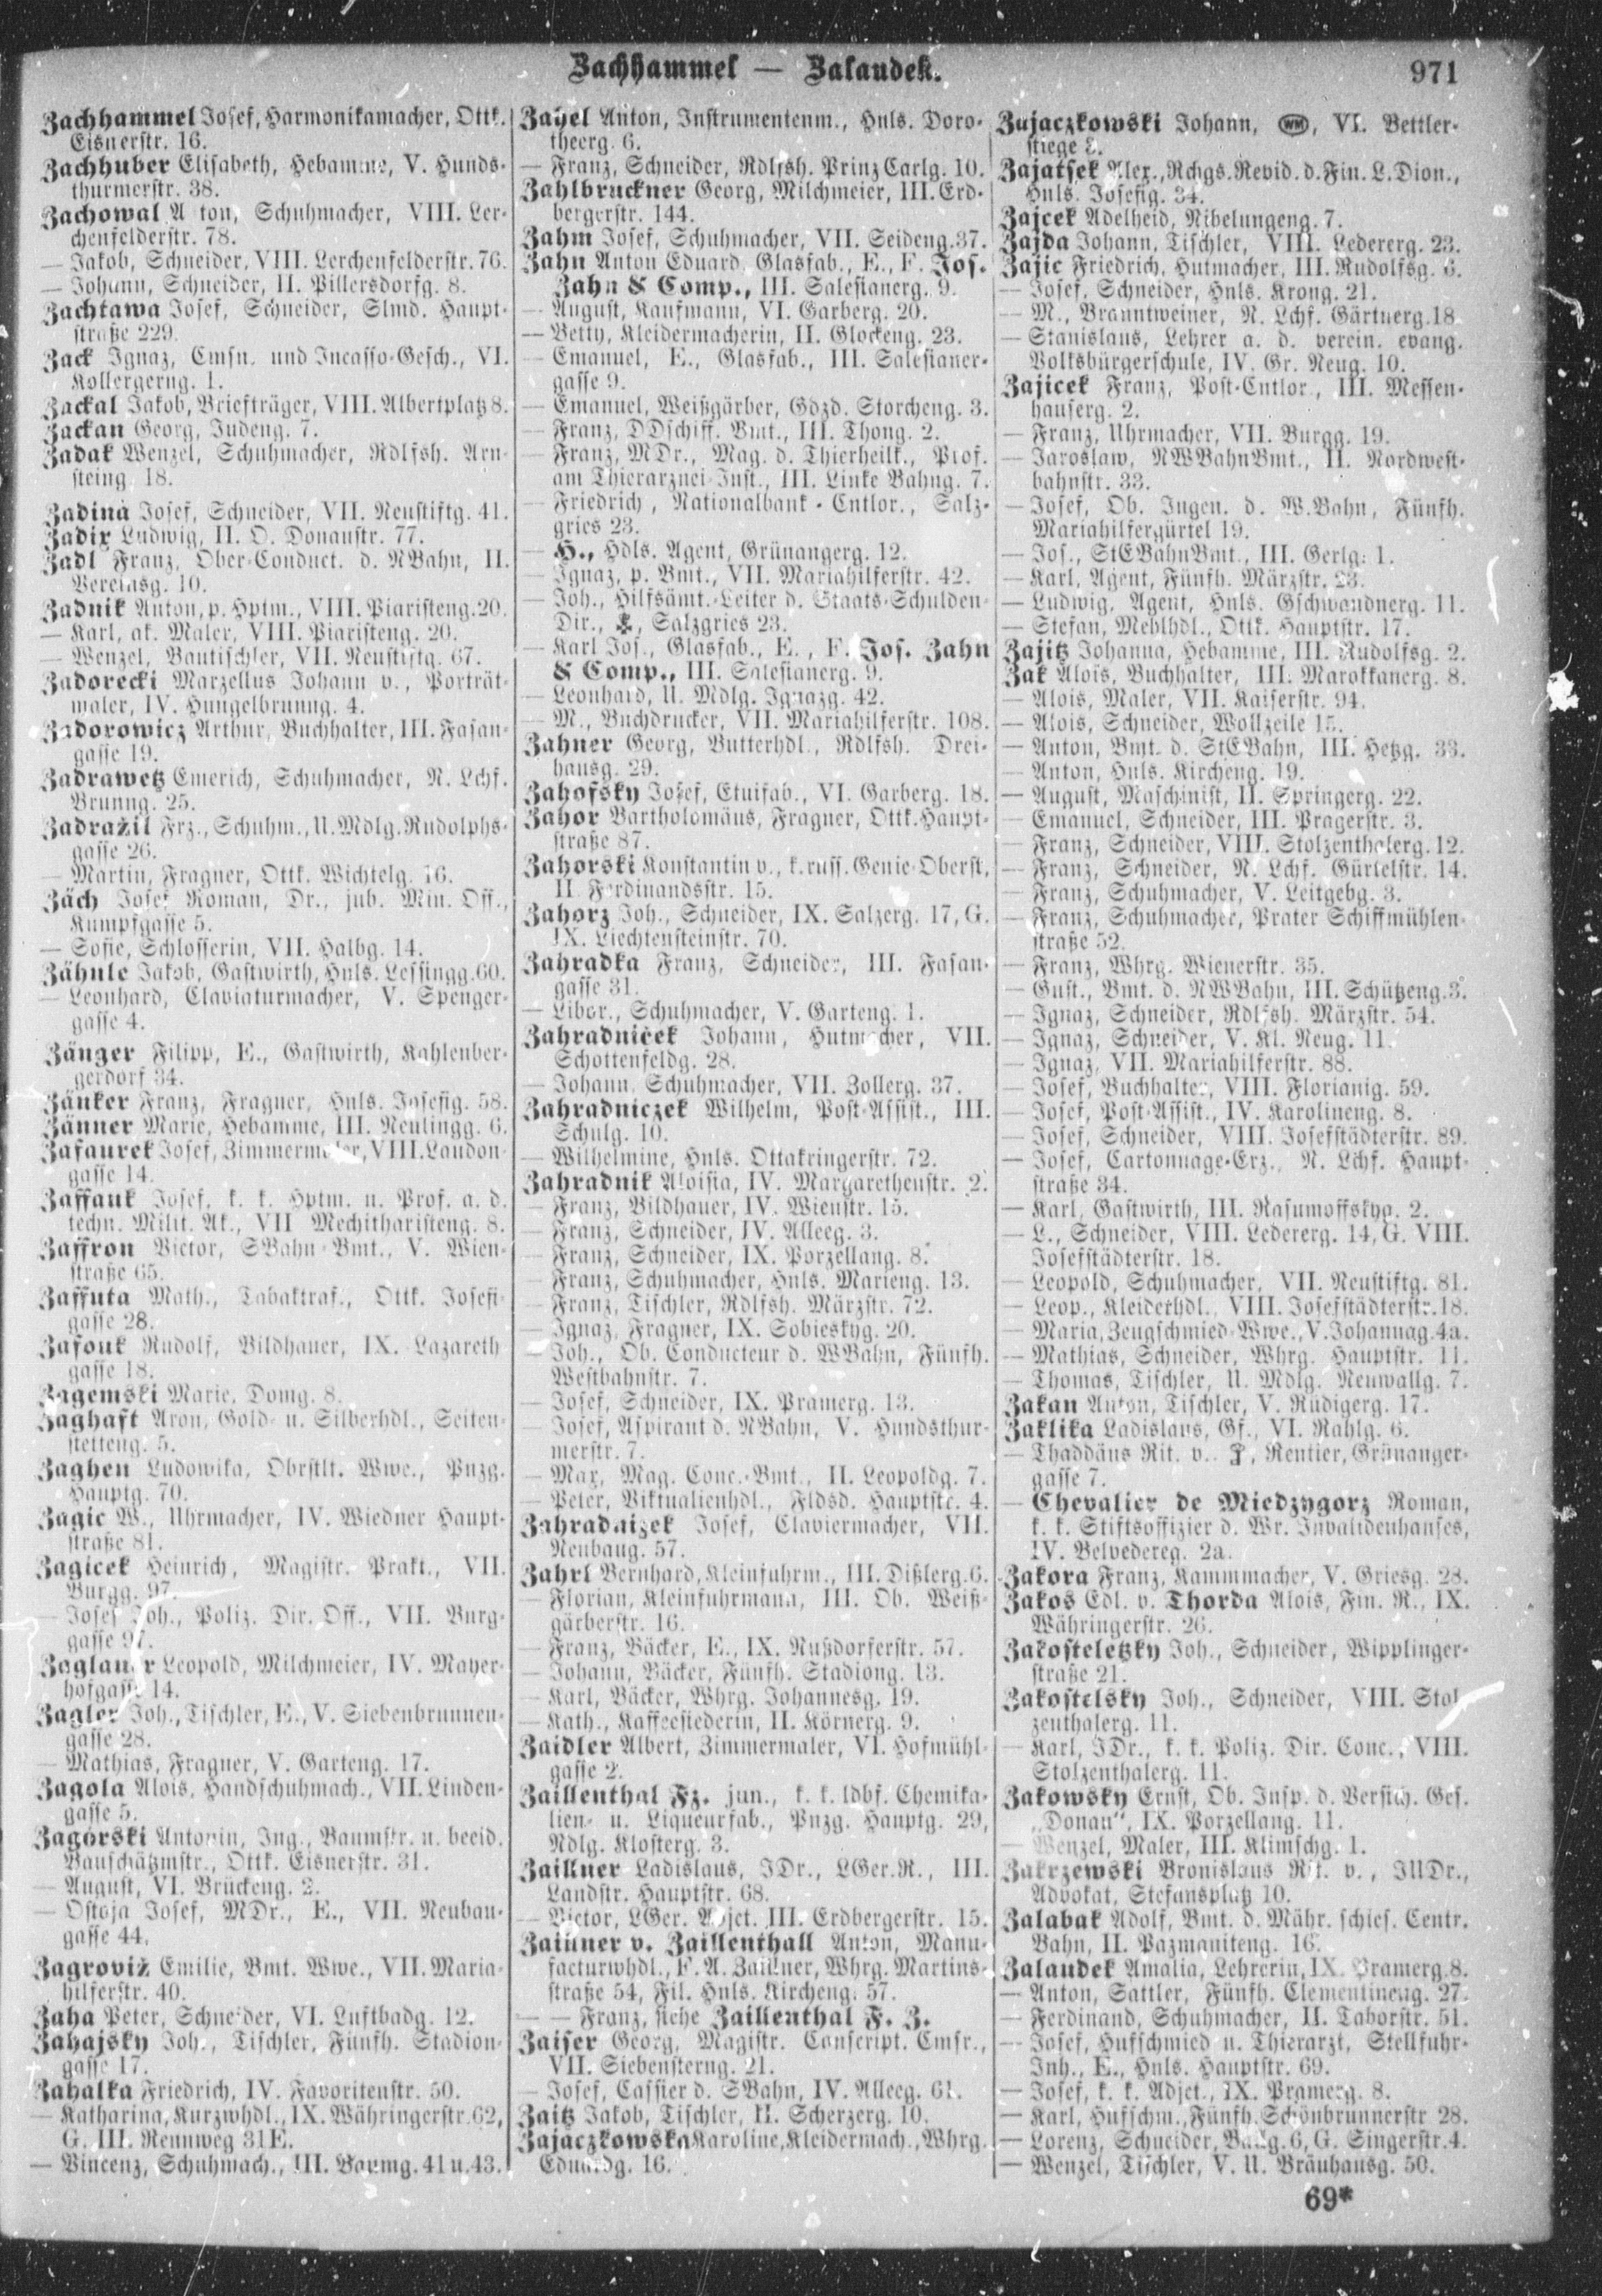 Zachhammel — Zalaudek.
971
Zachhammel Josef, Harmonikamacher, Ottk.
Eisnerstr. 16.
Zachhuber Elisabeth, Hebamme, V. Hunds-
thurmerstr. 38.
Zachowal A ton, Schuhmacher, VIII. Ler-
chenfelderstr. 78.
— Jakob, Schneider, VIII. Lerchenfelderstr. 76.
— Johann, Schneider, II. Pillersdorfg. 8.
Zachtawa Josef, Schneider, Slmd. Haupt-
straße 229.
Zack Ignaz, Cmsn. und Incasso-Gesch., VI.
Kollergerng. 1.
Zackal Jakob, Briefträger, VIII. Albertplatz 8.
Zackan Georg, Judeng. 7.
Zadak Wenzel, Schuhmacher, Rdlfsh. Arn-
steing. 18.
Zadina Josef, Schneider, VII. Neustiftg. 41.
Zadix Ludwig, II. O. Donaustr. 77.
Zadl Franz, Ober-Conduct. d. NBahn, II.
Vereinsg. 10.
Zadnik Anton, p. Hptm., VIII. Piaristeng. 20.
— Karl, ak. Maler, VIII. Piaristeng. 20.
— Wenzel, Bautischler, VII. Neustiftg. 67.
Zadorecki Marzellus Johann v., Porträt-
maler, IV. Hungelbrunng. 4.
Zadorowicz Arthur, Buchhalter, III. Fasan-
gasse 19.
Zadrawetz Emerich, Schuhmacher, N. Lchf.
Brunng. 25.
Zadražil Frz., Schuhm., U. Mdlg. Rudolphs-
gasse 26.
— Martin, Fragner, Ottk. Wichtelg. 16.
Zäch Josef Roman, Dr., jub. Min. Off.,
Kumpfgasse 5.
— Sofie, Schlosserin, VII. Halbg. 14.
Zähnle Jakob, Gastwirth, Hnls. Lessingg. 60.
— Leonhard, Claviaturmacher, V. Spenger-
gasse 4.
Zänger Filipp, E., Gastwirth, Kahlenber-
gerdorf 34.
Zänker Franz, Fragner, Hnls. Josefig. 58.
Zänner Marie, Hebamme, III. Neulingg. 6.
Zafaurek Josef, Zimmermaler, VIII. Laudon-
gasse 14.
Zaffauk Josef, k. k. Hptm. u. Prof. a. d.
techn. Milit. Ak., VII Mechitharisteng. 8.
Zaffron Victor, SBahn-Bmt., V. Wien-
straße 65.
Zaffuta Math., Tabaktraf., Ottk. Josefi-
gasse 28.
Zafouk Rudolf, Bildhauer, IX. Lazareth
gasse 18.
Zagemski Marie, Domg. 8.
Zaghaft Aron, Gold- u. Silberhdl., Seiten-
stetteng. 5.
Zaghen Ludowika, Obrstlt. Wwe., Pnzg.
Hauptg. 70.
Zagic W., Uhrmacher, IV. Wiedner Haupt-
straße 81.
Zagicek Heinrich, Magistr. Prakt., VII.
Burgg. 97.
— Josef Joh., Poliz. Dir. Off., VII. Burg-
gasse 97.
Zaglauer Leopold, Milchmeier, IV. Mayer-
hofgasse 14.
Zagler Joh., Tischler, E., V. Siebenbrunnen-
gasse 28.
— Mathias, Fragner, V. Garteng. 17.
Zagola Alois, Handschuhmach., VII. Linden-
gasse 5.
Zagórski Antonin, Ing., Baumstr. u. beeid.
Bauschätzmstr., Ottk. Eisnerstr. 31.
— August, VI. Brückeng. 2.
— Ostoja Josef, MDr., E., VII. Neubau-
gasse 44.
Zagroviž Emilie, Bmt. Wwe., VII. Maria-
hilferstr. 40.
Zaha Peter, Schneider, VI. Luftbadg. 12.
Zahajsky Joh., Tischler, Fünfh. Stadion-
gasse 17.
Zahalka Friedrich, IV. Favoritenstr. 50.
— Katharina, Kurzwhdl., IX. Währingerstr. 62,
G. III. Rennweg 31E.
— Vincenz, Schuhmach., III. Baumg. 41 u. 43.
Zahel Anton, Instrumentenm., Hnls. Doro-
theerg. 6.
— Franz, Schneider, Rdlfsh. Prinz Carlg. 10.
Zahlbruckner Georg, Milchmeier, III. Erd-
bergerstr. 144.
Zahm Josef, Schuhmacher, VII. Seideng. 37.
Zahn Anton Eduard, Glasfab., E., F. Jos.
Zahn & Comp., III. Salesianerg. 9.
— August, Kaufmann, VI. Garberg. 20.
— Betty, Kleidermacherin, II. Glockeng. 23.
— Emanuel, E., Glasfab., III. Salesianer-
gasse 9.
— Emanuel, Weißgärber, Gdzd. Storcheng. 3.
— Franz, DDschiff. Bmt., III. Thong. 2.
— Franz, MDr., Mag. d. Thierheilk., Prof.
am Thierarznei-Inst., III. Linke Bahng. 7.
— Friedrich, Nationalbank-Cntlor., Salz-
gries 23.
— H., Hdls. Agent, Grünangerg. 12.
— Ignaz, p. Bmt., VII. Mariahilferstr. 42.
— Joh., Hilfsämt.-Leiter d. Staats-Schulden-
Dir., Salzgries 23.
— Karl Jos., Glasfab., E., F. Jos. Zahn
& Comp., III. Salesianerg. 9.
— Leonhard, U. Mdlg. Ignazg. 42.
— M., Buchdrucker, VII. Mariahilferstr. 108.
Zahner Georg, Butterhdl., Rdlfsh. Drei-
hausg. 29.
Zahofsky Josef, Etuifab., VI. Garberg. 18.
Zahor Bartholomäus, Fragner, Ottk. Haupt-
straße 87.
Zahorski Konstantin v., k. russ. Genie-Oberst,
II. Ferdinandsstr. 15.
Zahorz Joh., Schneider, IX. Salzerg. 17, G.
IX. Liechtensteinstr. 70.
Zahradka Franz, Schneider, III. Fasan-
gasse 31.
— Libor., Schuhmacher, V. Garteng. 1.
Zahradniček Johann, Hutmacher, VII.
Schottenfeldg. 28.
— Johann, Schuhmacher, VII. Zollerg. 37.
Zahradniczek Wilhelm, Post-Assist., III.
Schulg. 10.
— Wilhelmine, Hnls. Ottakringerstr. 72.
Zahradnik Aloisia, IV. Margarethenstr. 2.
— Franz, Bildhauer, IV. Wienstr. 15.
— Franz, Schneider, IV. Alleeg. 3.
— Franz, Schneider, IX. Porzellang. 8.
— Franz, Schuhmacher, Hnls. Marieng. 13.
— Franz, Tischler, Rdlfsh. Märzstr. 72.
— Ignaz, Fragner, IX. Sobieskyg. 20.
— Joh., Ob. Conducteur d. WBahn, Fünfh.
Westbahnstr. 7.
— Josef, Schneider, IX. Pramerg. 13.
— Josef, Aspirant d. NBahn, V. Hundsthur-
merstr. 7.
— Max, Mag. Conc.-Bmt., II. Leopoldg. 7.
— Peter, Viktualienhdl., Fldsd. Hauptstr. 4.
Zahradnizek Josef, Claviermacher, VII.
Neubaug. 57.
Zahrl Bernhard, Kleinfuhrm., III. Dißlerg. 6.
— Florian, Kleinfuhrmann, III. Ob. Weiß-
gärberstr. 16.
— Franz, Bäcker, E., IX. Nußdorferstr. 57.
— Johann, Bäcker, Fünfh. Stadiong. 13.
— Karl, Bäcker, Whrg. Johannesg. 19.
— Kath., Kaffeesiederin, II. Körnerg. 9.
Zaidler Albert, Zimmermaler, VI. Hofmühl-
gasse 2.
Zaillenthal Fz. jun., k. k. ldbf. Chemika-
lien- u. Liqueurfab., Pnzg. Hauptg. 29,
Ndlg. Klosterg. 3.
Zaillner Ladislaus, JDr., LGer.R., III.
Landstr. Hauptstr. 68.
— Victor, LGer. Adjct. III. Erdbergerstr. 15.
Zaillner v. Zaillenthall Anton, Manu-
facturwhdl., F. A. Zaillner, Whrg. Martins-
straße 54, Fil. Hnls. Kircheng. 57.
— — Franz, siehe Zaillenthal F. Z.
Zaiser Georg, Magistr. Conscript. Cmsr.,
VII. Siebensterng. 21.
— Josef, Cassier d. SBahn, IV. Alleeg. 61.
Zaitz Jakob, Tischler, II. Scherzerg. 10.
Zajaczkowska Karoline, Kleidermach., Whrg.
Eduardg. 16.
Zajaczkowski Johann, WM, VI. Bettler-
stiege 3.
Zajatsek Alex., Rchgs. Revid. d. Fin. L. Dion.,
Hnls. Josefig. 34.
Zajcek Adelheid, Nibelungeng. 7.
Zajda Johann, Tischler, VIII. Ledererg. 23.
Zajic Friedrich, Hutmacher, III. Rudolfsg. 6.
— Josef, Schneider, Hnls. Krong. 21.
— M., Branntweiner, N. Lchf. Gärtnerg. 18
— Stanislaus, Lehrer a. d. verein. evang.
Volksbürgerschule, IV. Gr. Neug. 10.
Zajicek Franz, Post-Cntlor., III. Messen-
hauserg. 2.
— Franz, Uhrmacher, VII. Burgg. 19.
— Jaroslaw, NWBahnBmt., II. Nordwest-
bahnstr. 33.
— Josef, Ob. Ingen. d. W.Bahn, Fünfh.
Mariahilfergürtel 19.
— Jos., StEBahnBmt., III. Gerlg. 1.
— Karl, Agent, Fünfh. Märzstr. 23.
— Ludwig, Agent, Hnls. Gschwandnerg. 11.
— Stefan, Mehlhdl., Ottk. Hauptstr. 17.
Zajitz Johanna, Hebamme, III. Rudolfsg. 2.
Zak Alois, Buchhalter, III. Marokkanerg. 8.
— Alois, Maler, VII. Kaiserstr. 94.
— Alois, Schneider, Wollzeile 15.
— Anton, Bmt. d. StEBahn, III. Hetzg. 33.
— Anton, Hnls. Kircheng. 19.
— August, Maschinist, II. Springerg. 22.
— Emanuel, Schneider, III. Pragerstr. 3.
— Franz, Schneider, VIII. Stolzenthalerg. 12.
— Franz, Schneider, N. Lchf. Gürtelstr. 14.
— Franz, Schuhmacher, V. Leitgebg. 3.
— Franz, Schuhmacher, Prater Schiffmühlen-
straße 52.
— Franz, Whrg. Wienerstr. 35.
— Gust., Bmt. d. NWBahn, III. Schützeng. 3.
— Ignaz, Schneider, Rdlfsh. Märzstr. 54.
— Ignaz, Schneider, V. Kl. Neug. 11.
— Ignaz, VII. Mariahilferstr. 88.
— Josef, Buchhalter, VIII. Florianig. 59.
— Josef, Post-Assist., IV. Karolineng. 8.
— Josef, Schneider, VIII. Josefstädterstr. 89.
— Josef, Cartonnage-Erz., N. Lchf. Haupt-
straße 34.
— Karl, Gastwirth, III. Rasumoffskyg. 2.
— L., Schneider, VIII. Ledererg. 14, G. VIII.
Josefstädterstr. 18.
— Leopold, Schuhmacher, VII. Neustiftg. 81.
— Leop., Kleiderhdl., VIII. Josefstädterstr. 18.
— Maria, Zeugschmied-Wwe., V. Johannag. 4a.
— Mathias, Schneider, Whrg. Hauptstr. 11.
— Thomas, Tischler, U. Mdlg. Neuwallg. 7.
Zakan Anton, Tischler, V. Rüdigerg. 17.
Zaklika Ladislaus, Gf., VI. Rahlg. 6.
— Thaddäus Rit. v., Rentier, Grünanger-
gasse 7.
— Chevalier de Miedzygorz Roman,
k. k. Stiftsoffizier d. Wr. Invalidenhauses,
IV. Belvedereg. 2a.
Zakora Franz, Kammmacher, V. Griesg. 28.
Zakos Edl. v. Thorda Alois, Fin. R., IX.
Währingerstr. 26.
Zakosteletzky Joh., Schneider, Wipplinger-
straße 21.
Zakostelsky Joh., Schneider, VIII. Stol-
zenthalerg. 11.
— Karl, JDr., k. k. Poliz. Dir. Conc., VIII.
Stolzenthalerg. 11.
Zakowsky Ernst, Ob. Insp. d. Versich. Ges.
„Donau“, IX. Porzellang. 11.
— Wenzel, Maler, III. Klimschg. 1.
Zakrzewski Bronislaus Rit. v., JUDr.,
Advokat, Stefansplatz 10.
Zalabak Adolf, Bmt. d. Mähr. schles. Centr.
Bahn, II. Pazmaniteng. 16.
Zalaudek Amalia, Lehrerin, IX. Pramerg. 8.
— Anton, Sattler, Fünfh. Clementineng. 27.
— Ferdinand, Schuhmacher, II. Taborstr. 51.
— Josef, Hufschmied u. Thierarzt, Stellfuhr-
Inh., E., Hnls. Hauptstr. 69.
— Josef, k. k. Adjct., IX. Pramerg. 8.
— Karl, Hufschm., Fünfh. Schönbrunnerstr 28.
— Lorenz, Schneider, Ballg. 6, G. Singerstr. 4.
— Wenzel, Tischler, V. U. Bräuhausg. 50.
69*